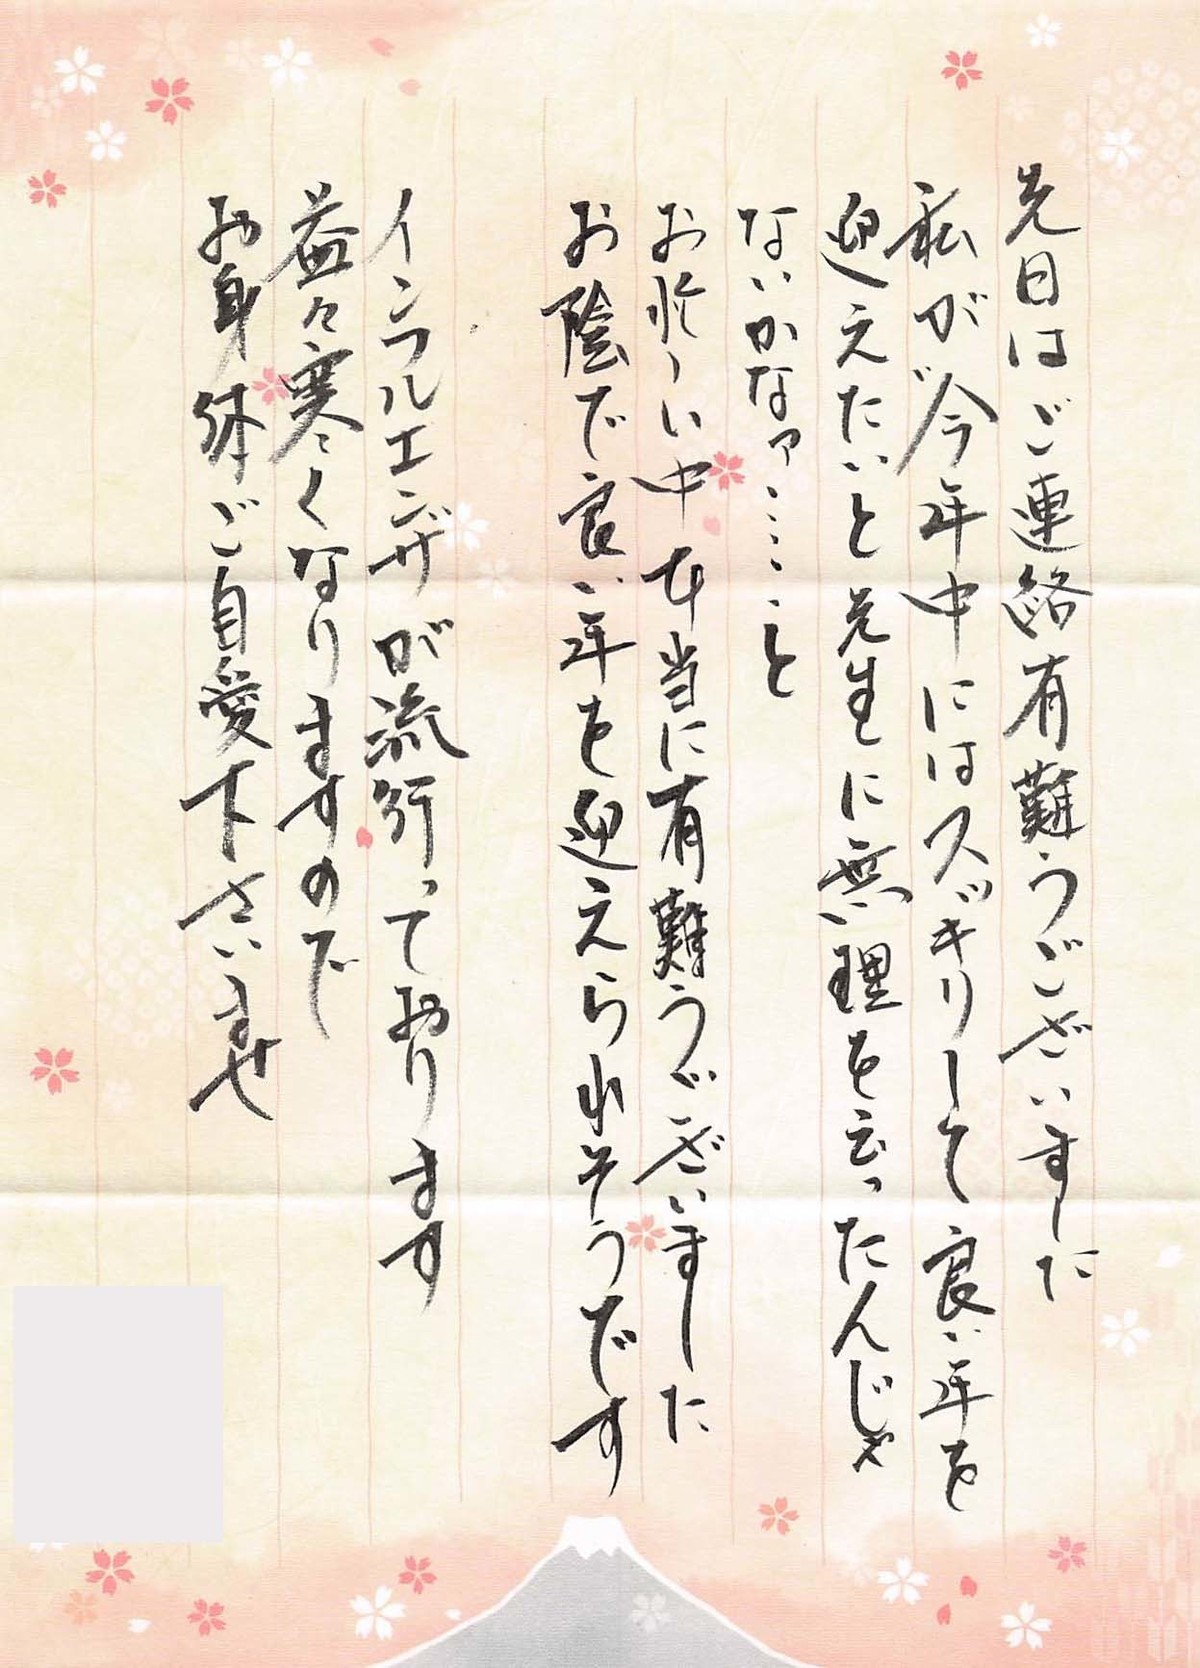 先日はご連絡有難うございました
私が今年中にはスッキリして良い年を
迎えたいと先生に無理を云ったんじゃ
ないかなァ……と
お忙しい中本当に有難うございました
お陰で良い年を迎えられそうです
インフルエンザが流行っております
益々寒くなりますので
お身体ご自愛下さいませ